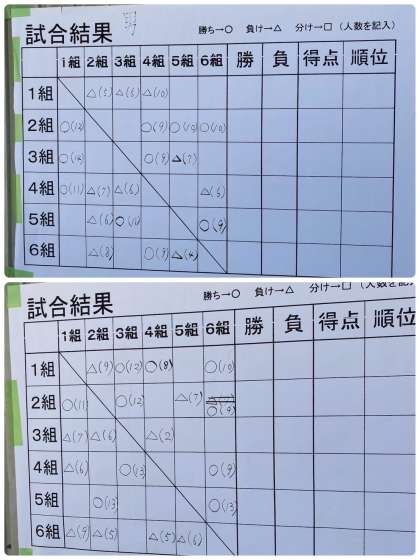 試合結果 男
勝ち→○ 負け→△ 分け→□ (人数を記入)
1組 2組 3組 4組 5組 6組 勝 負 得点 順位
1組 △(5) △(6) △(10)
2組 ○(12) ○(9) ○(10) ○(10)
3組 ○(14) ○(8) △(7)
4組 ○(11) △(7) △(6) △(6)
5組 △(6) ○(10) ○(9)
6組 △(8) ○(9) △(4)
試合結果
勝ち→○ 負け→△ 分け→□ (人数を記入)
1組 2組 3組 4組 5組 6組 勝 負 得点 順位
1組 △(9) ○(12) ○(8) ○(10)
2組 ○(11) ○(12) △(7) ○(9)
3組 △(7) △(6) △(2)
4組 △(6) ○(13) ○(9)
5組 ○(13) ○(13)
6組 △(9) △(5) △(5) △(6)